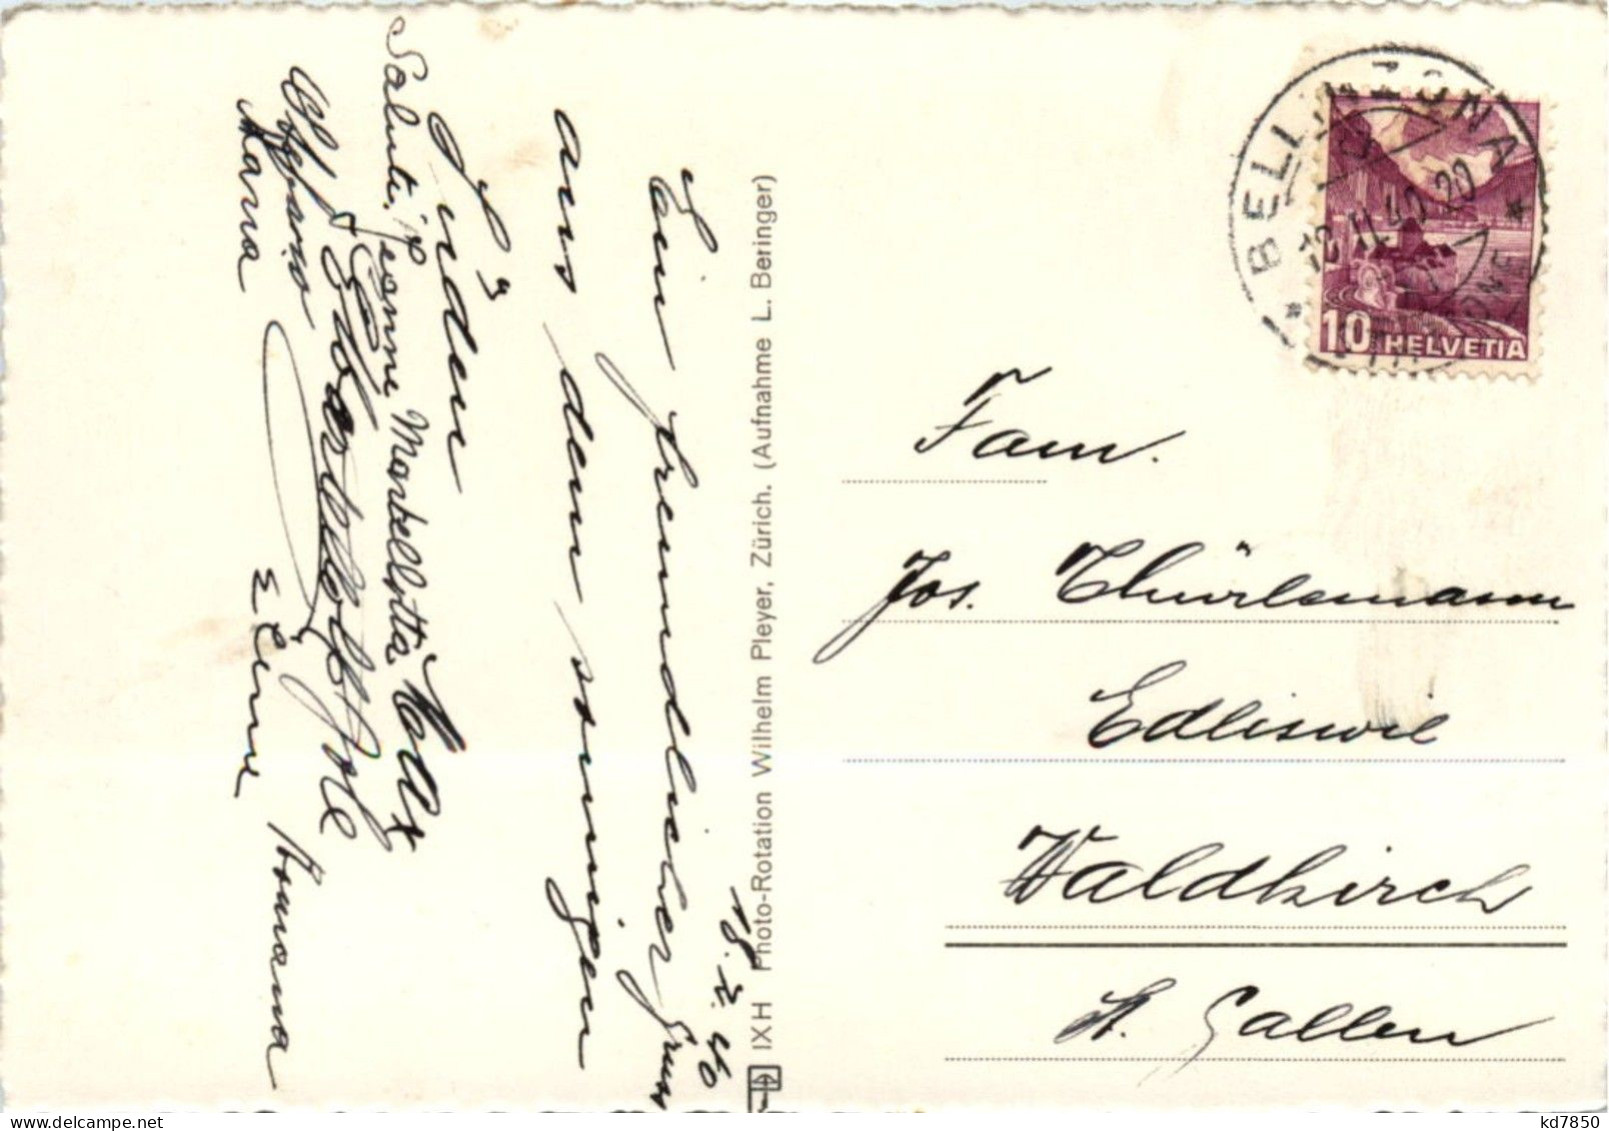 18.2.40
Ein freundlicher Gruss
aus dem sonnigen
Süden
Saluti, Yvonne Marbellotta
Jole
Maria Erna
Mamma
IXH Photo-Rotation Wilhelm Pleyer, Zürich. (Aufnahme L. Beringer)
BELLINZONA
10 HELVETIA
Fam.
Jos. Thürlemann
Edliswil
Waldkirch
St. Gallen
kd7850